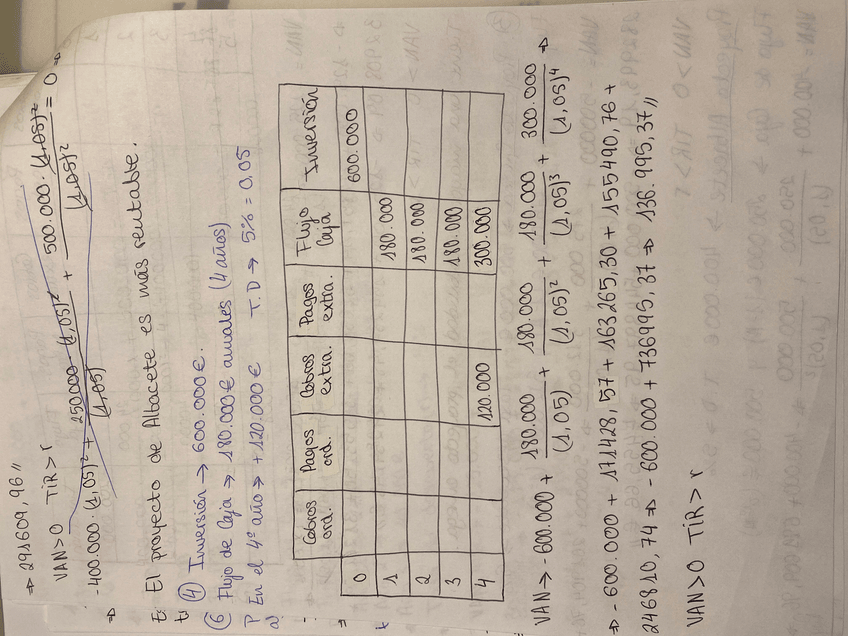 ⇒ 291609,96 //
VAN>0 TIR>r
-400.000·(1,05)² + 250.000·(1,05)² / (1,05) + 500.000·(1,05)² / (1,05)² = 0 ⇒
⇒
El proyecto de Albacete es más rentable.
④ Inversión → 600.000€.
Flujo de Caja → 180.000€ anuales (4 años)
En el 4º año → +120.000€ T.D → 5% = 0,05
Cobros ord. Pagos ord. Cobros extra. Pagos extra. Flujo Caja Inversión
0 600.000
1 180.000
2 180.000
3 180.000
4 120.000 300.000
VAN → -600.000 + 180.000 / (1,05) + 180.000 / (1,05)² + 180.000 / (1,05)³ + 300.000 / (1,05)⁴ ⇒
⇒ -600.000 + 171428,57 + 163265,30 + 155490,76 +
246810,74 ⇒ -600.000 + 736995,37 ⇒ 136.995,37 //
VAN>0 TIR>r